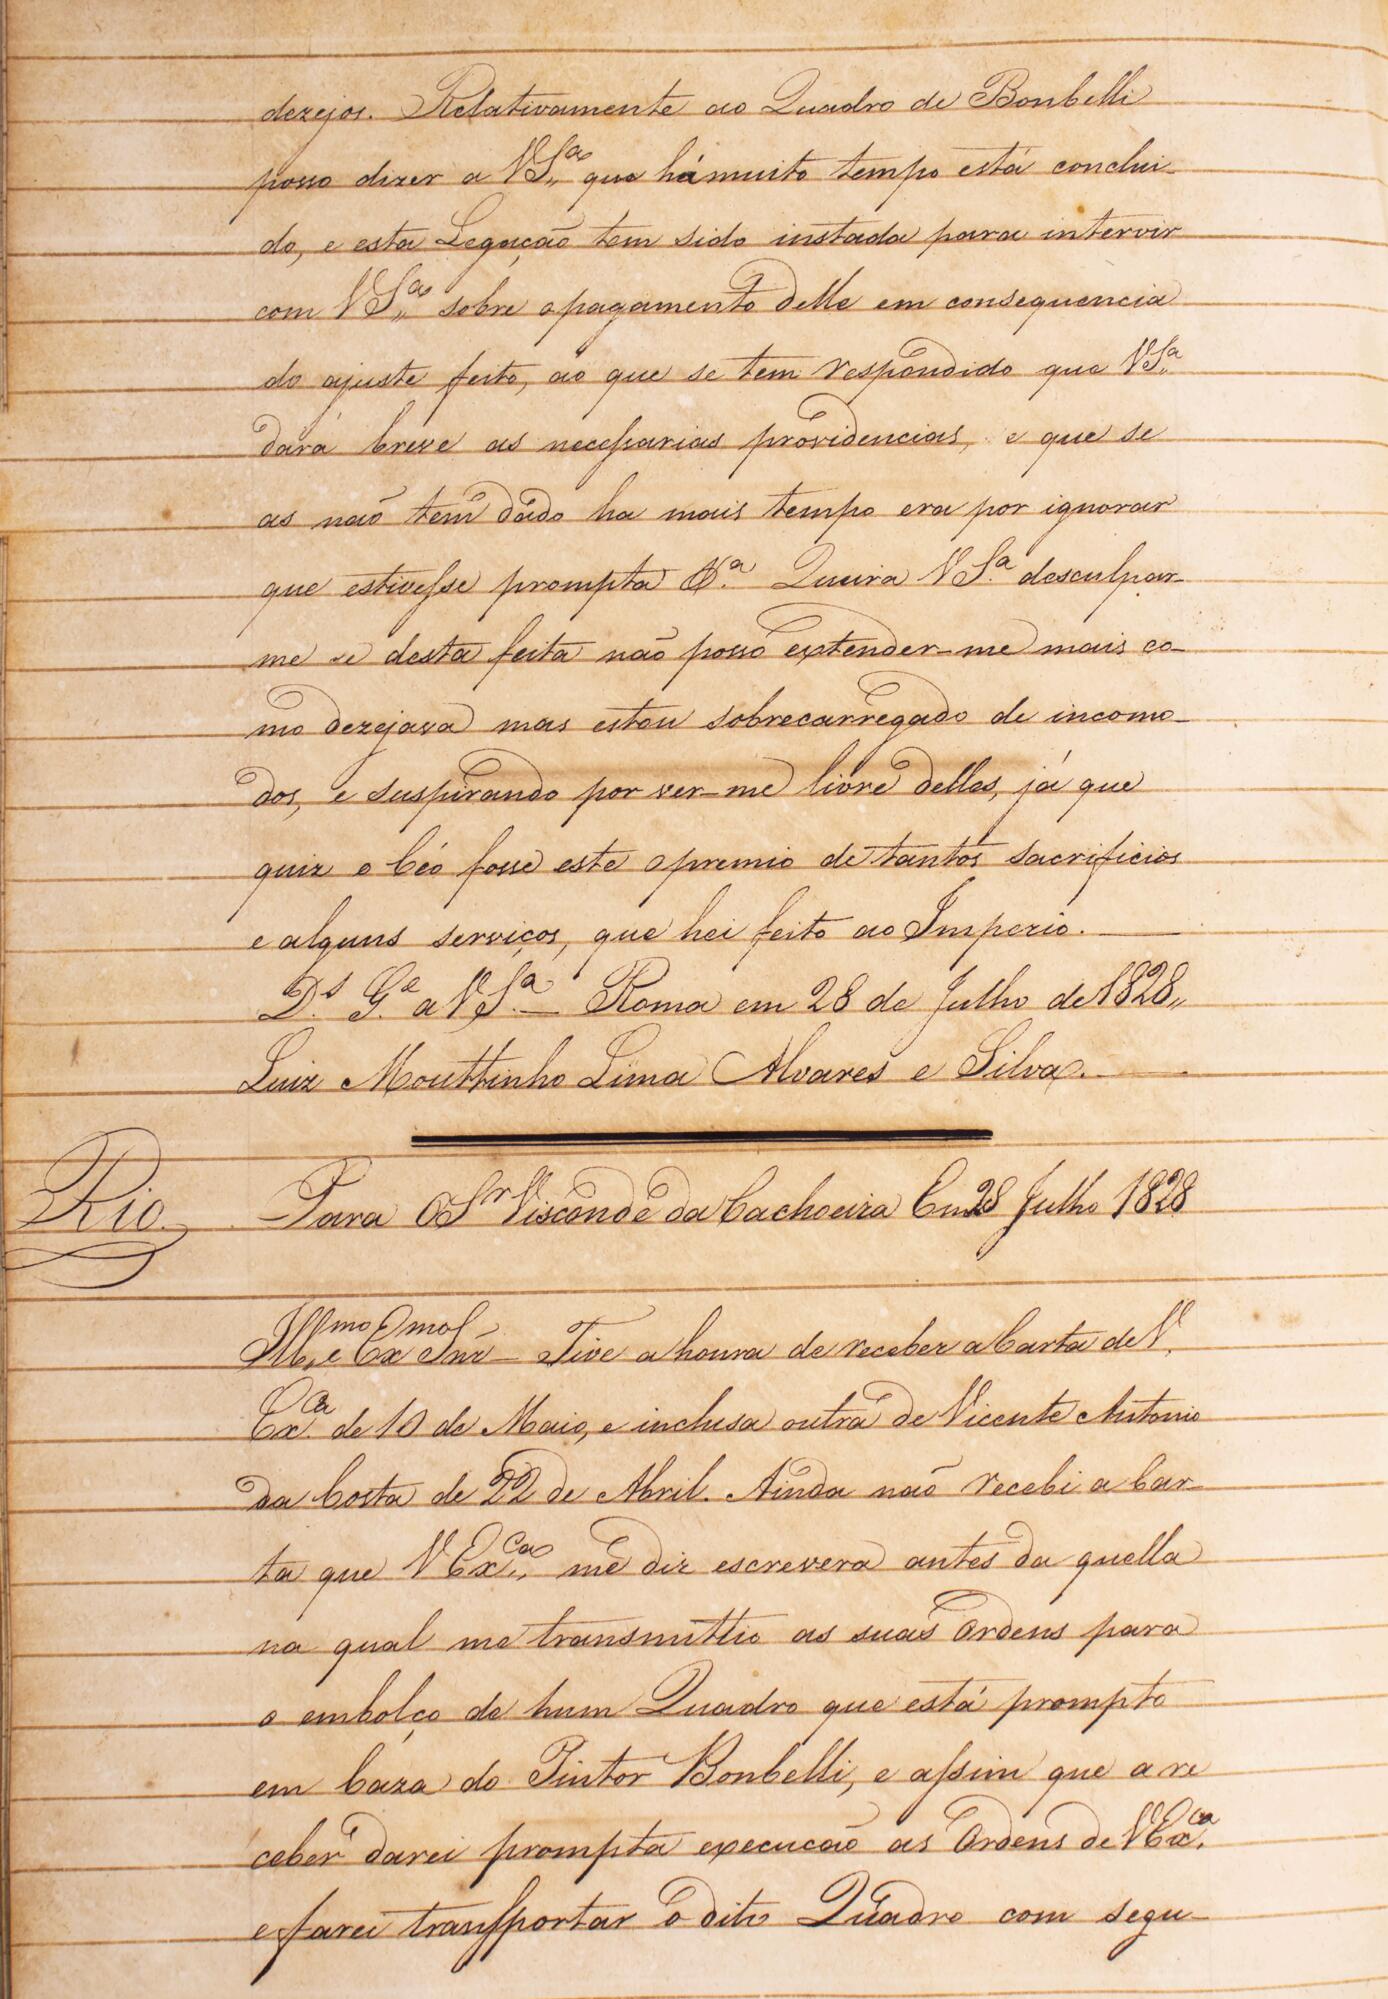 dezejos. Relativamente ao Quadro de Bonbelli
posso dizer a V Sª que há muito tempo está conclui-
do, e esta Legação tem sido instada para intervir
com V Sª sobre o pagamento delle em consequencia
do ajuste feito, ao que se tem respondido que V Sª
dará breve as necessarias providencias, e que se
as não tem dado ha mais tempo era por ignorar
que estivesse prompta &ª. Queira V Sª desculpar-
me se desta feita não posso extender-me mais co-
mo dezejava mas estou sobrecarregado de incomo-
dos, e suspirando por ver-me livre delles, já que
quiz o Céo fosse este o premio de tantos sacrificios
e alguns serviços, que hei feito ao Imperio. —
Dˢ. Gᵉ. a V Sª. — Roma em 28 de Julho de 1828,,
Luiz Mouttinho Lima Alvares e Silva. —
Rio. Para O Sʳ Visconde da Cachoeira Em 28 Julho 1828
Illᵐᵒ e Exᵐᵒ Snr̃ — Tive a honra de receber a Carta de V.
Exᶜᵃ. de 10 de Maio, e inclusa outra de Vicente Antonio
da Costa de 22 de Abril. Ainda não recebi a Car-
ta que V Exᶜᵃ me diz escrevera antes da quella
na qual me transmittio as suas Ordens para
o embolço de hum Quadro que está prompto
em Caza do Pintor Bonbelli, e assim que a re
ceber darei prompta execucão as Ordens de V Exᶜᵃ.
e farei transsportar o dito Quadro com segu-